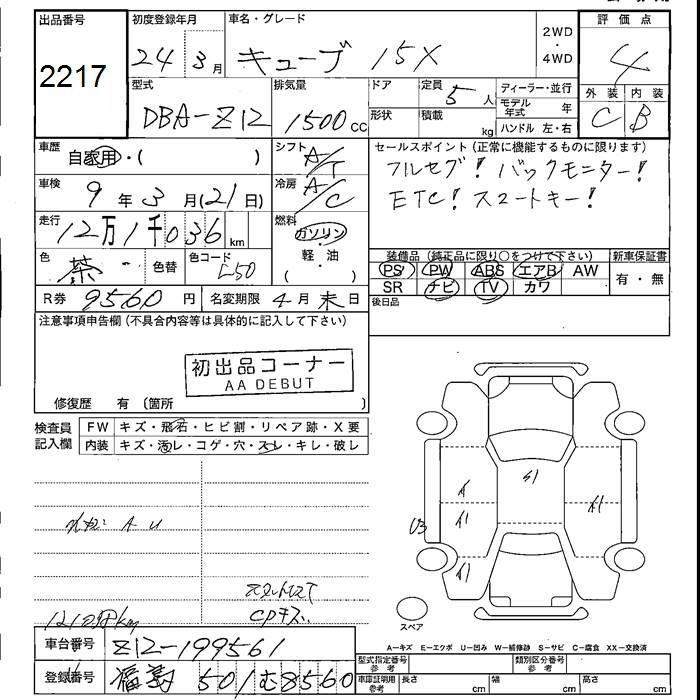 出品番号
2217
初度登録年月
24年3月
車名・グレード
キューブ 15X
2WD
・
4WD
評価点
4
外装 内装
C B
型式
DBA-Z12
排気量
1500cc
ドア
形状
定員
5人
積載
kg
ディーラー・並行
モデル
年式 年
ハンドル 左・右
車歴
自家用・( )
シフト
A/T
セールスポイント(正常に機能するものに限ります)
フルセグ! バックモニター!
ETC! スマートキー!
車検
9年3月(21日)
冷房
A/C
走行
12万1千036km
燃料
ガソリン
軽・油
( )
色
茶
色替
色コード
L50
装備品(純正品に限り○をつけて下さい)
PS PW ABS エアB AW
SR ナビ TV カワ
新車保証書
有・無
R券 9560円
名変期限 4月末日
後日品
注意事項申告欄(不具合内容等は具体的に記入して下さい)
初出品コーナー
AA DEBUT
修復歴 有(箇所 )
検査員
記入欄
FW キズ・飛石・ヒビ割・リペア跡・X要
内装 キズ・汚レ・コゲ・穴・スレ・キレ・破レ
A U
S1
A
A1
A1
A1
U3
CPキズ
スペア
A=キズ E=エクボ U=凹み W=補修跡 S=サビ C=腐食 XX=交換済
車台番号
Z12-199561
登録番号
501 む 8560
型式指定番号
参考
類別区分番号
参考
車庫証明用
参考
長さ cm
幅 cm
高さ cm